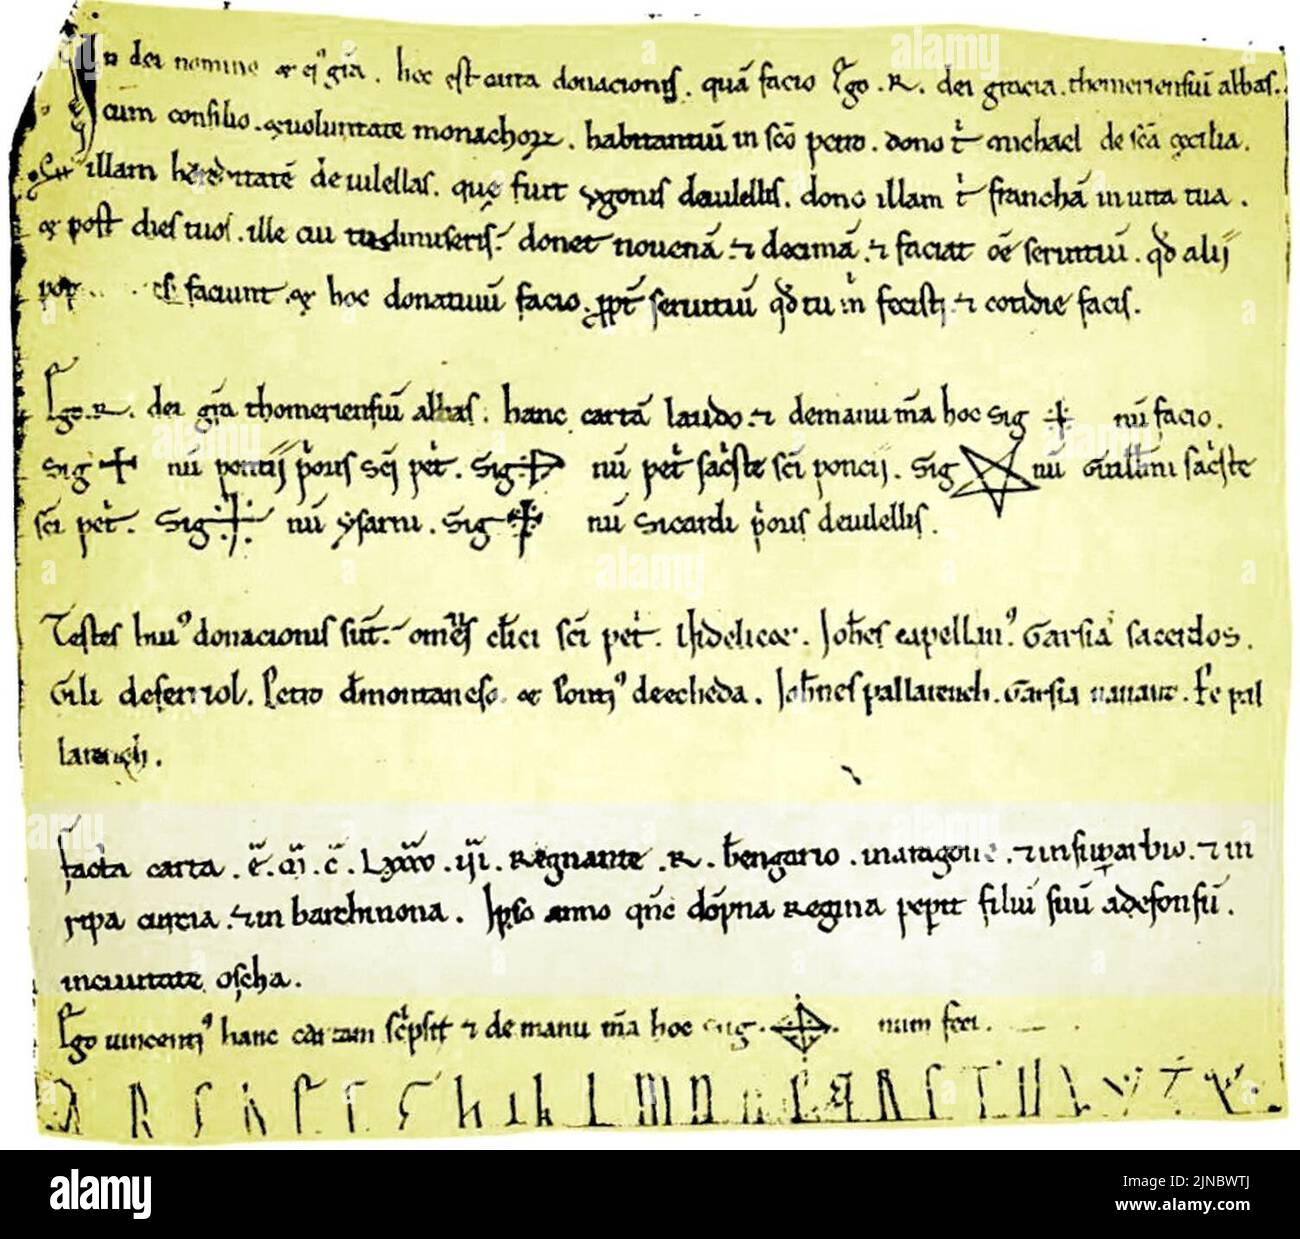 In dei nomine & ei⁹ grā. hoc est carta donacionis. quā facio Ego .R. dei gracia. thomeriensiū abbas.
cum consilio. & voluntate monachoꝝ. habitantiū in sc̄o petro. dono t' michael de sc̄a cecilia.
illam hereditatē de vilellas. que fuit ygonis devilellis. dono illam t' franchā in vita tua.
& post dies tuos. ille cui tu dimiseris. donet novenā. & decimā. & faciat oē servitiū. qd̄ alii
faciunt. & hoc donativū facio. ꝓpt' servitiū qd̄ tu m̄ fecisti & cotidie facis.
Ego. R. dei grā thomeriensiū abbas. hanc cartā laudo. & de manu m̄a hoc sig nū facio.
Sig nū pontii p̄oris sc̄i pet'. Sig nū pet' sac'ste sc̄i poncii. Sig nū Guillmi sac'ste
sc̄i pet'. Sig nū ysarni. Sig nū Sicardi p̄oris devilellis.
Testes hui⁹ donacionis sūt. om̄es cl̄ici sc̄i pet'. Videlicet. Joh̄es capellan⁹. Garsia sacerdos.
Gili deferriol. Petro d̄montaneso. & Ponti⁹ deecheda. Joh̄nes pallarench. Garsia navarr. Pe pal
larench.
facta carta. ē. m̄. c̄. Lxxxv. iiii. Regnante .R. b̄engario. in aragone. & in suprarbio. & in
ripa curcia. & in barchinona. Ipso anno qn̄c dōpna Regina pep'it filiū suū adefonsū.
in civitate oscha.
Ego vincenti⁹ hanc cartam sc'psit & de manu m̄a hoc sig. num feci.
alamy
Image ID: 2JNBWTJ
www.alamy.com